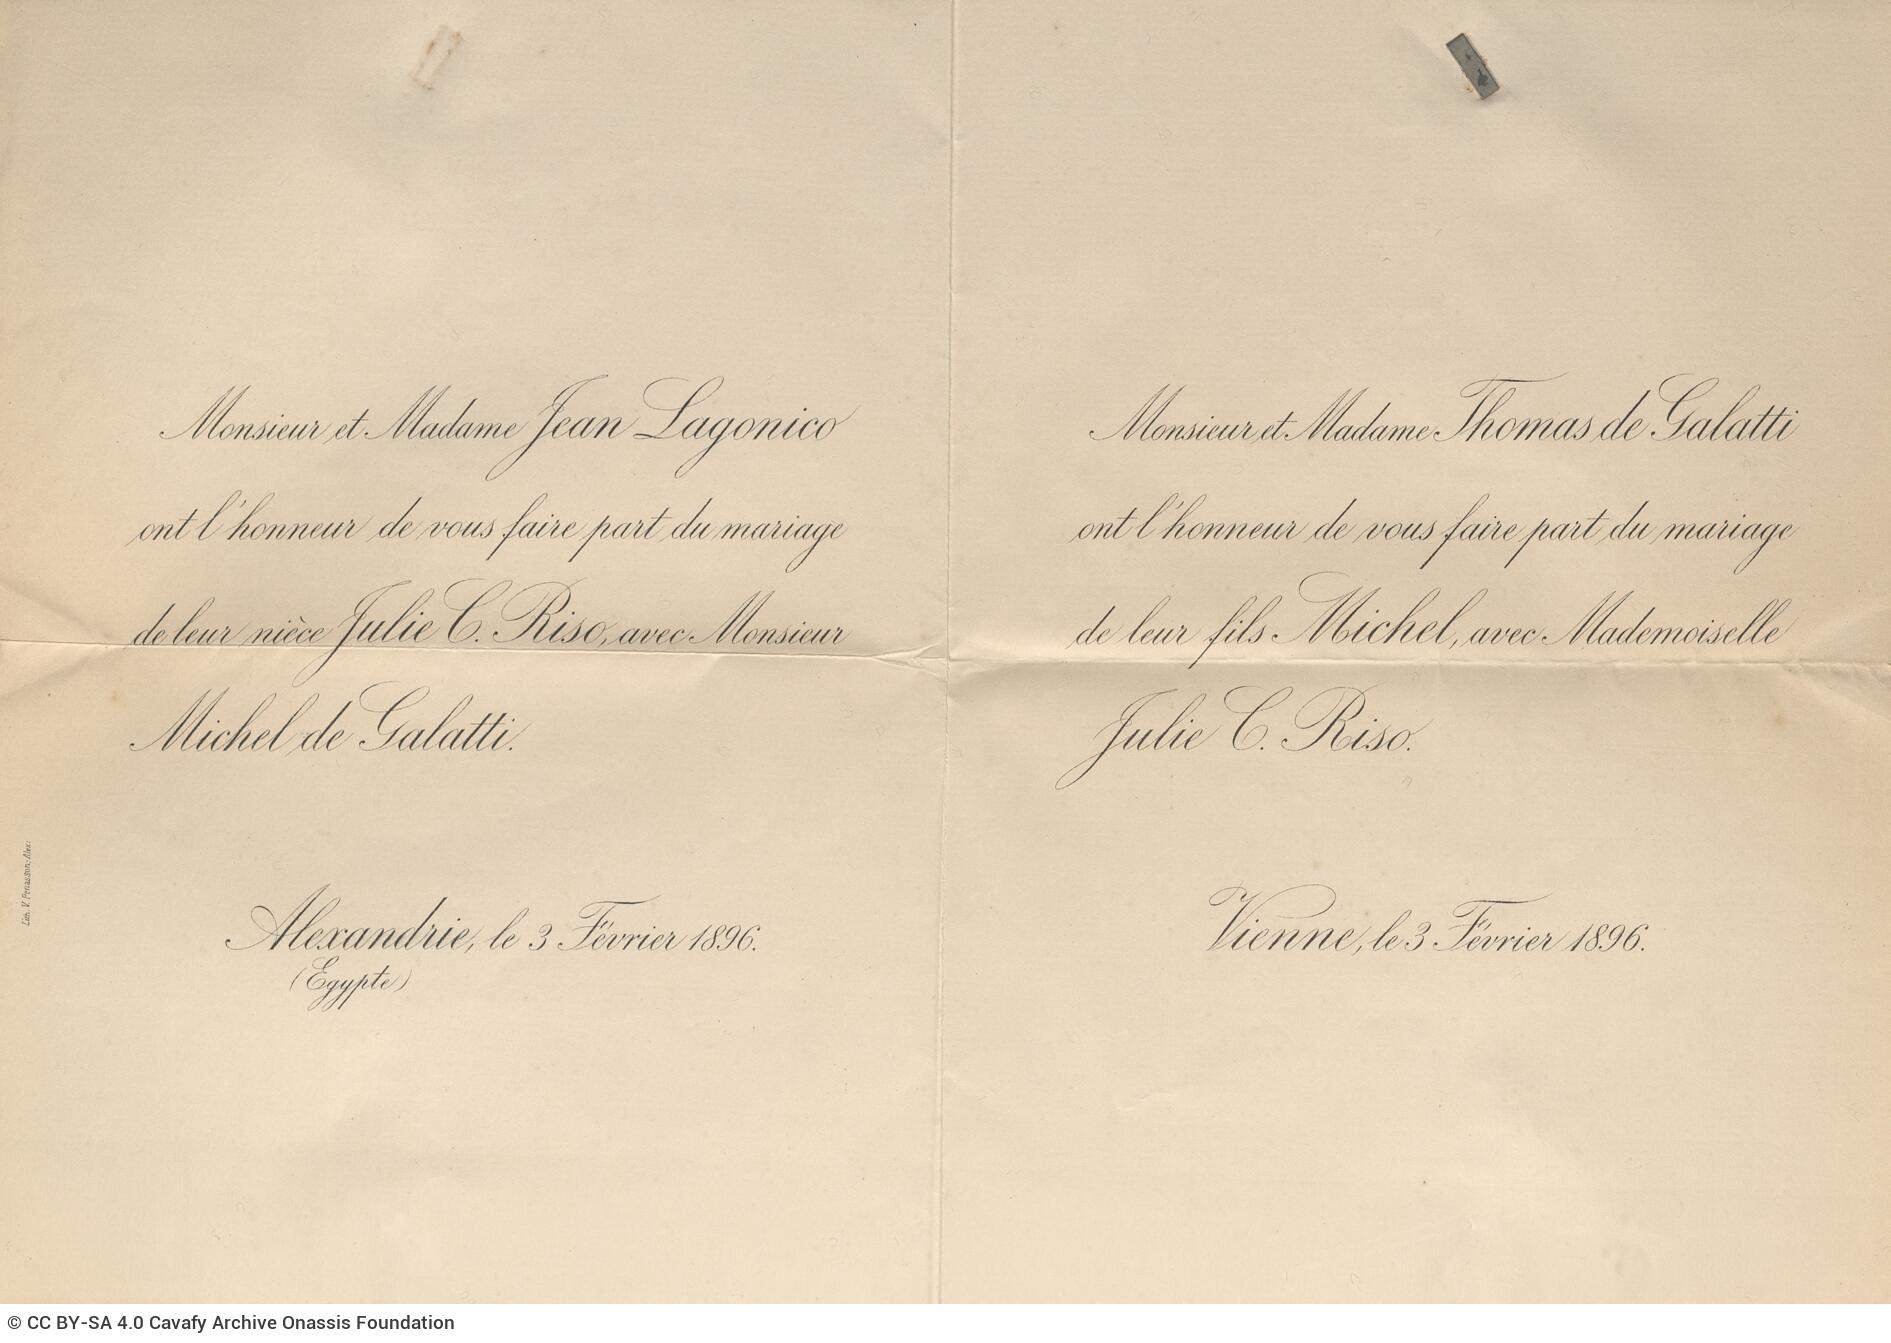 Monsieur et Madame Jean Lagonico
ont l'honneur de vous faire part du mariage
de leur nièce Julie C. Riso, avec Monsieur
Michel de Galatti.
Alexandrie, le 3 Février 1896.
(Egypte)
Lith. V. Penasson, Alex:
Monsieur et Madame Thomas de Galatti
ont l'honneur de vous faire part du mariage
de leur fils Michel, avec Mademoiselle
Julie C. Riso.
Vienne, le 3 Février 1896.
© CC BY-SA 4.0 Cavafy Archive Onassis Foundation